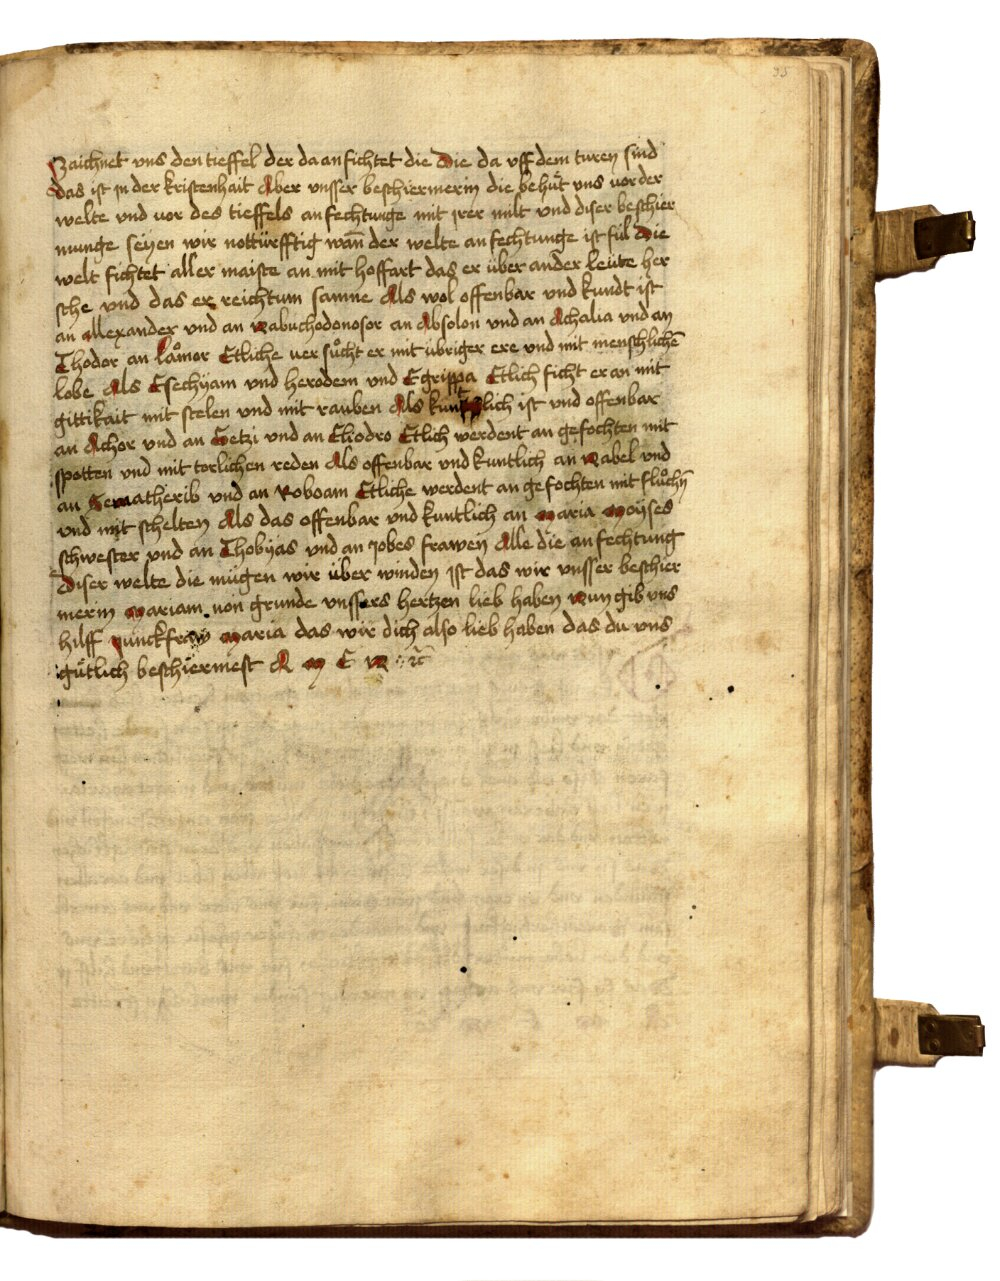 35
Zaichnet vns den tieffel der da an fichtet die Die da vff dem turen sind
das ist jn der kristenhait Aber vnsser beschiermerin die behüt vns vor der
welte vnd vor des tieffels an fechtunge mit jrer milt vnd diser beschier
munge seyen wir nottürfftig wañ der welte an fechtunge ist fúl Die
welt fichtet aller maiste an mit hoffart das er über ander leüte her
sche vnd das er reichtum samne Als wol offenbar vnd kundt ist
an allexander vnd an Nabuchodonosor an Absolon vnd an Achalia vnd an
Thodor an Laͦmor Etliche uer suͦcht er mit übriger ere vnd mit menschlichē
lobe Als Esechyam vnd herodem vnd Egrippa Etlich ficht er an mit
gittikait mit stelen vnd mit rauben Als lich ist vnd offenbar
an Achor vnd an Getzi vnd an Eliodro Etlich werdent an gefochten mit
spotten vnd mit torlichen reden Als offenbar vnd kuntlich an Nabel vnd
an Senatherib vnd an Roboam Etliche werdent an gefochten mit fluͦchñ
vnd mit schelten Als das offenbar vnd kuntlich an Maria Moyses
schwester vnd an Thobyas vnd an jobes frawen Alle die an fechtung
Diser welte die mügen wir über winden jst das wir vnsser beschier
merin Mariam von grunde vnssers hertzen lieb haben Nun gib vns
hilff junckfraw Maria das wir dich also lieb haben das du vns
gütlich beschiermest A M E N